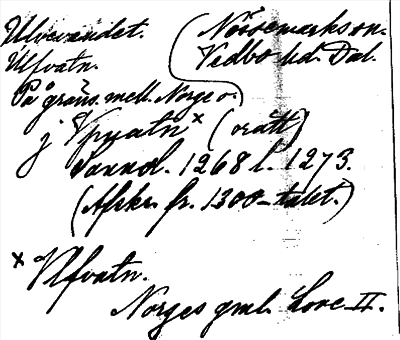 Ulvevandet.
Ulfvatn.
På gräns. mell. Norge o.
Nössemarks sn.
Vedbo hd. Dal.
j Vpuatn x (orätt)
Sannol. 1268 l. 1273.
(Afskr. fr. 1300-talet.)
x Vlfvatn.
Norges gml. Love II.